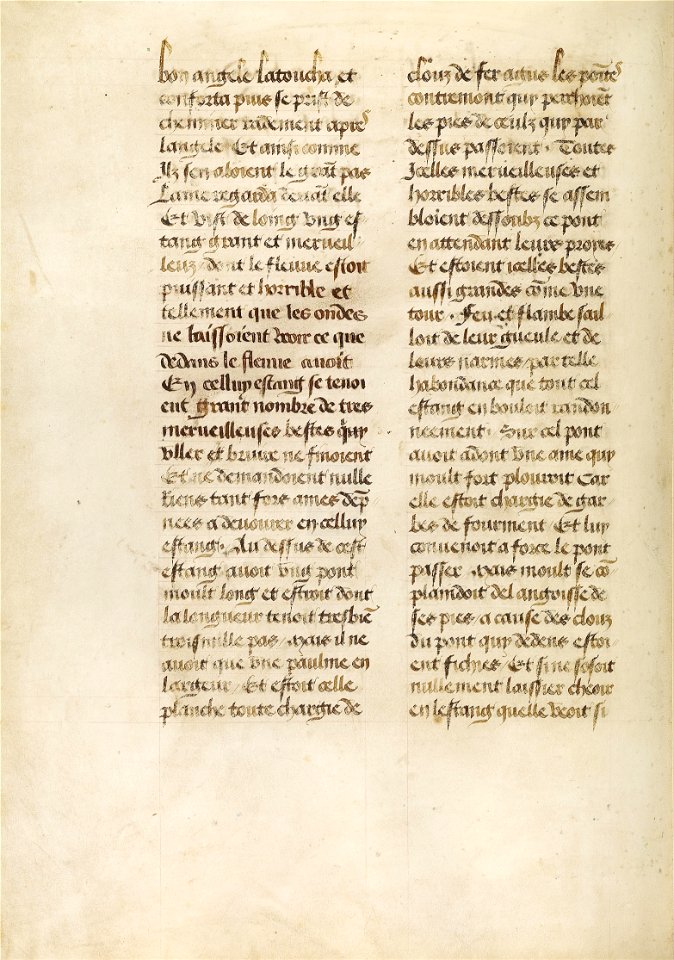 bon angele latoucha et
conforta puis se prist de
cheminer radement apres
langele Et ainsi comme
Ilz sen aloient le grāt pas
Lame regarda deuāt elle
Et vist de loing vng es-
tang grant et merueil-
leuz / dont le fleuue estoit
puissant et horrible et
tellement que les ondes
ne laissoient veoir ce que
dedens le fleuue auoit
En celluy estang se tenoi
ent grant nombre de tres
merueilleuses bestes q̄uy
vller et bruire ne finoient
Et ne demandoient nulle
riens tant fors ames dep̄
nees a deuourer en celluy
estang . Au dessus de cest
estang auoit vng pont
moult long et estroit dont
la longueur tenoit tresbiē
troismille pas / Mais il ne
auoit que vne paulme en
largeur / Et estoit celle
planche toute chargie de
clouz de fer agus les poītes
contremont quy perchoiēt
les pies de ceulz quy par
dessus passoient . Toutes
Icelles merueilleuses et
horribles bestes se assem
bloient dessoubz ce pont
en attendant leurs proyes
Et estoient icelles bestes
aussi grandes cōme vne
tour . Feu et flambe sail
loit de leur gueule et de
leurs narines / par telle
habondance que tout cel
estang en bouloit randon
neement . Sur cel pont
auoit adont vne ame quy
moult fort plouroit Car
elle estoit chargie de gar-
bes de fourment / Et luy
conuenoit a force le pont
passer / Mais moult se cō-
plaindoit del angoisse de
ses pies / a cause des clouz
du pont quy dedens estoi-
ent fichies / Et si ne sosoit
nullement laissier cheoir
en lestang quelle veoit si